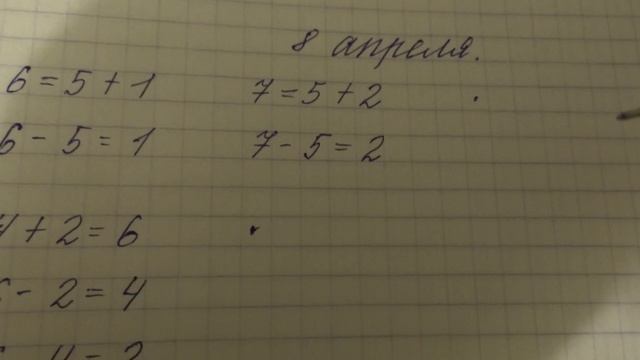 8 апреля.
6 = 5 + 1 7 = 5 + 2
6 - 5 = 1 7 - 5 = 2
4 + 2 = 6
6 - 2 = 4